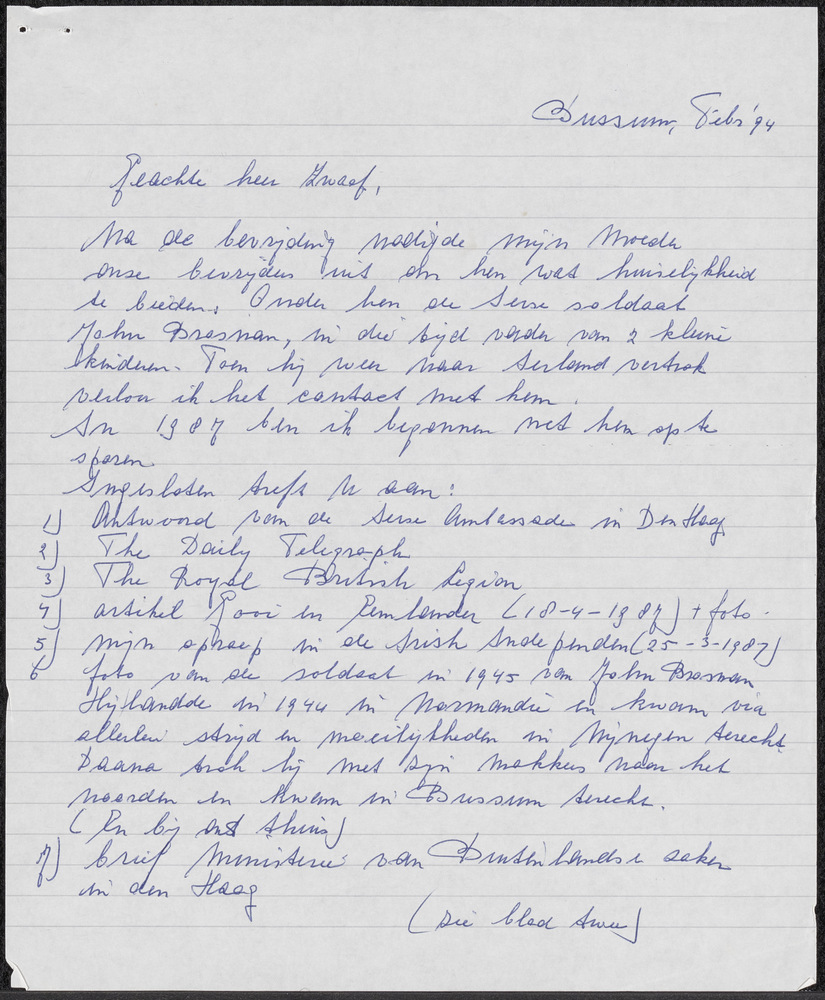 Bussum, Febr '94
Geachte heer Zwaaf,
Na de bevrijding nodigde mijn Moeder
onze bevrijders uit om hen wat huiselijkheid
te bieden. Onder hen de Ierse soldaat
John Brosnan, in die tijd vader van 2 kleine
kinderen. Toen hij weer naar Ierland vertrok
verloor ik het contact met hem.
In 1987 ben ik begonnen met hem op te
sporen.
Ingesloten treft U aan:
1) Antwoord van de Ierse Ambassade in Den Haag
2) The Daily Telegraph
3) The Royal British Legion
4) artikel Gooi en Eemlander (18-4-1987) + foto.
5) mijn oproep in de Irish Independen (25-3-1987)
6 foto van de soldaat in 1945 van John Brosnan
Hij landde in 1944 in Normandië en kwam via
allerlei strijd en moeilijkheden in Nijmegen terecht
Daarna trok hij met zijn makkers naar het
noorden en kwam in Bussum terecht.
(En bij ons thuis)
7) brief Ministerie van Buitenlandse zaken
in den Haag
(zie blad twee)